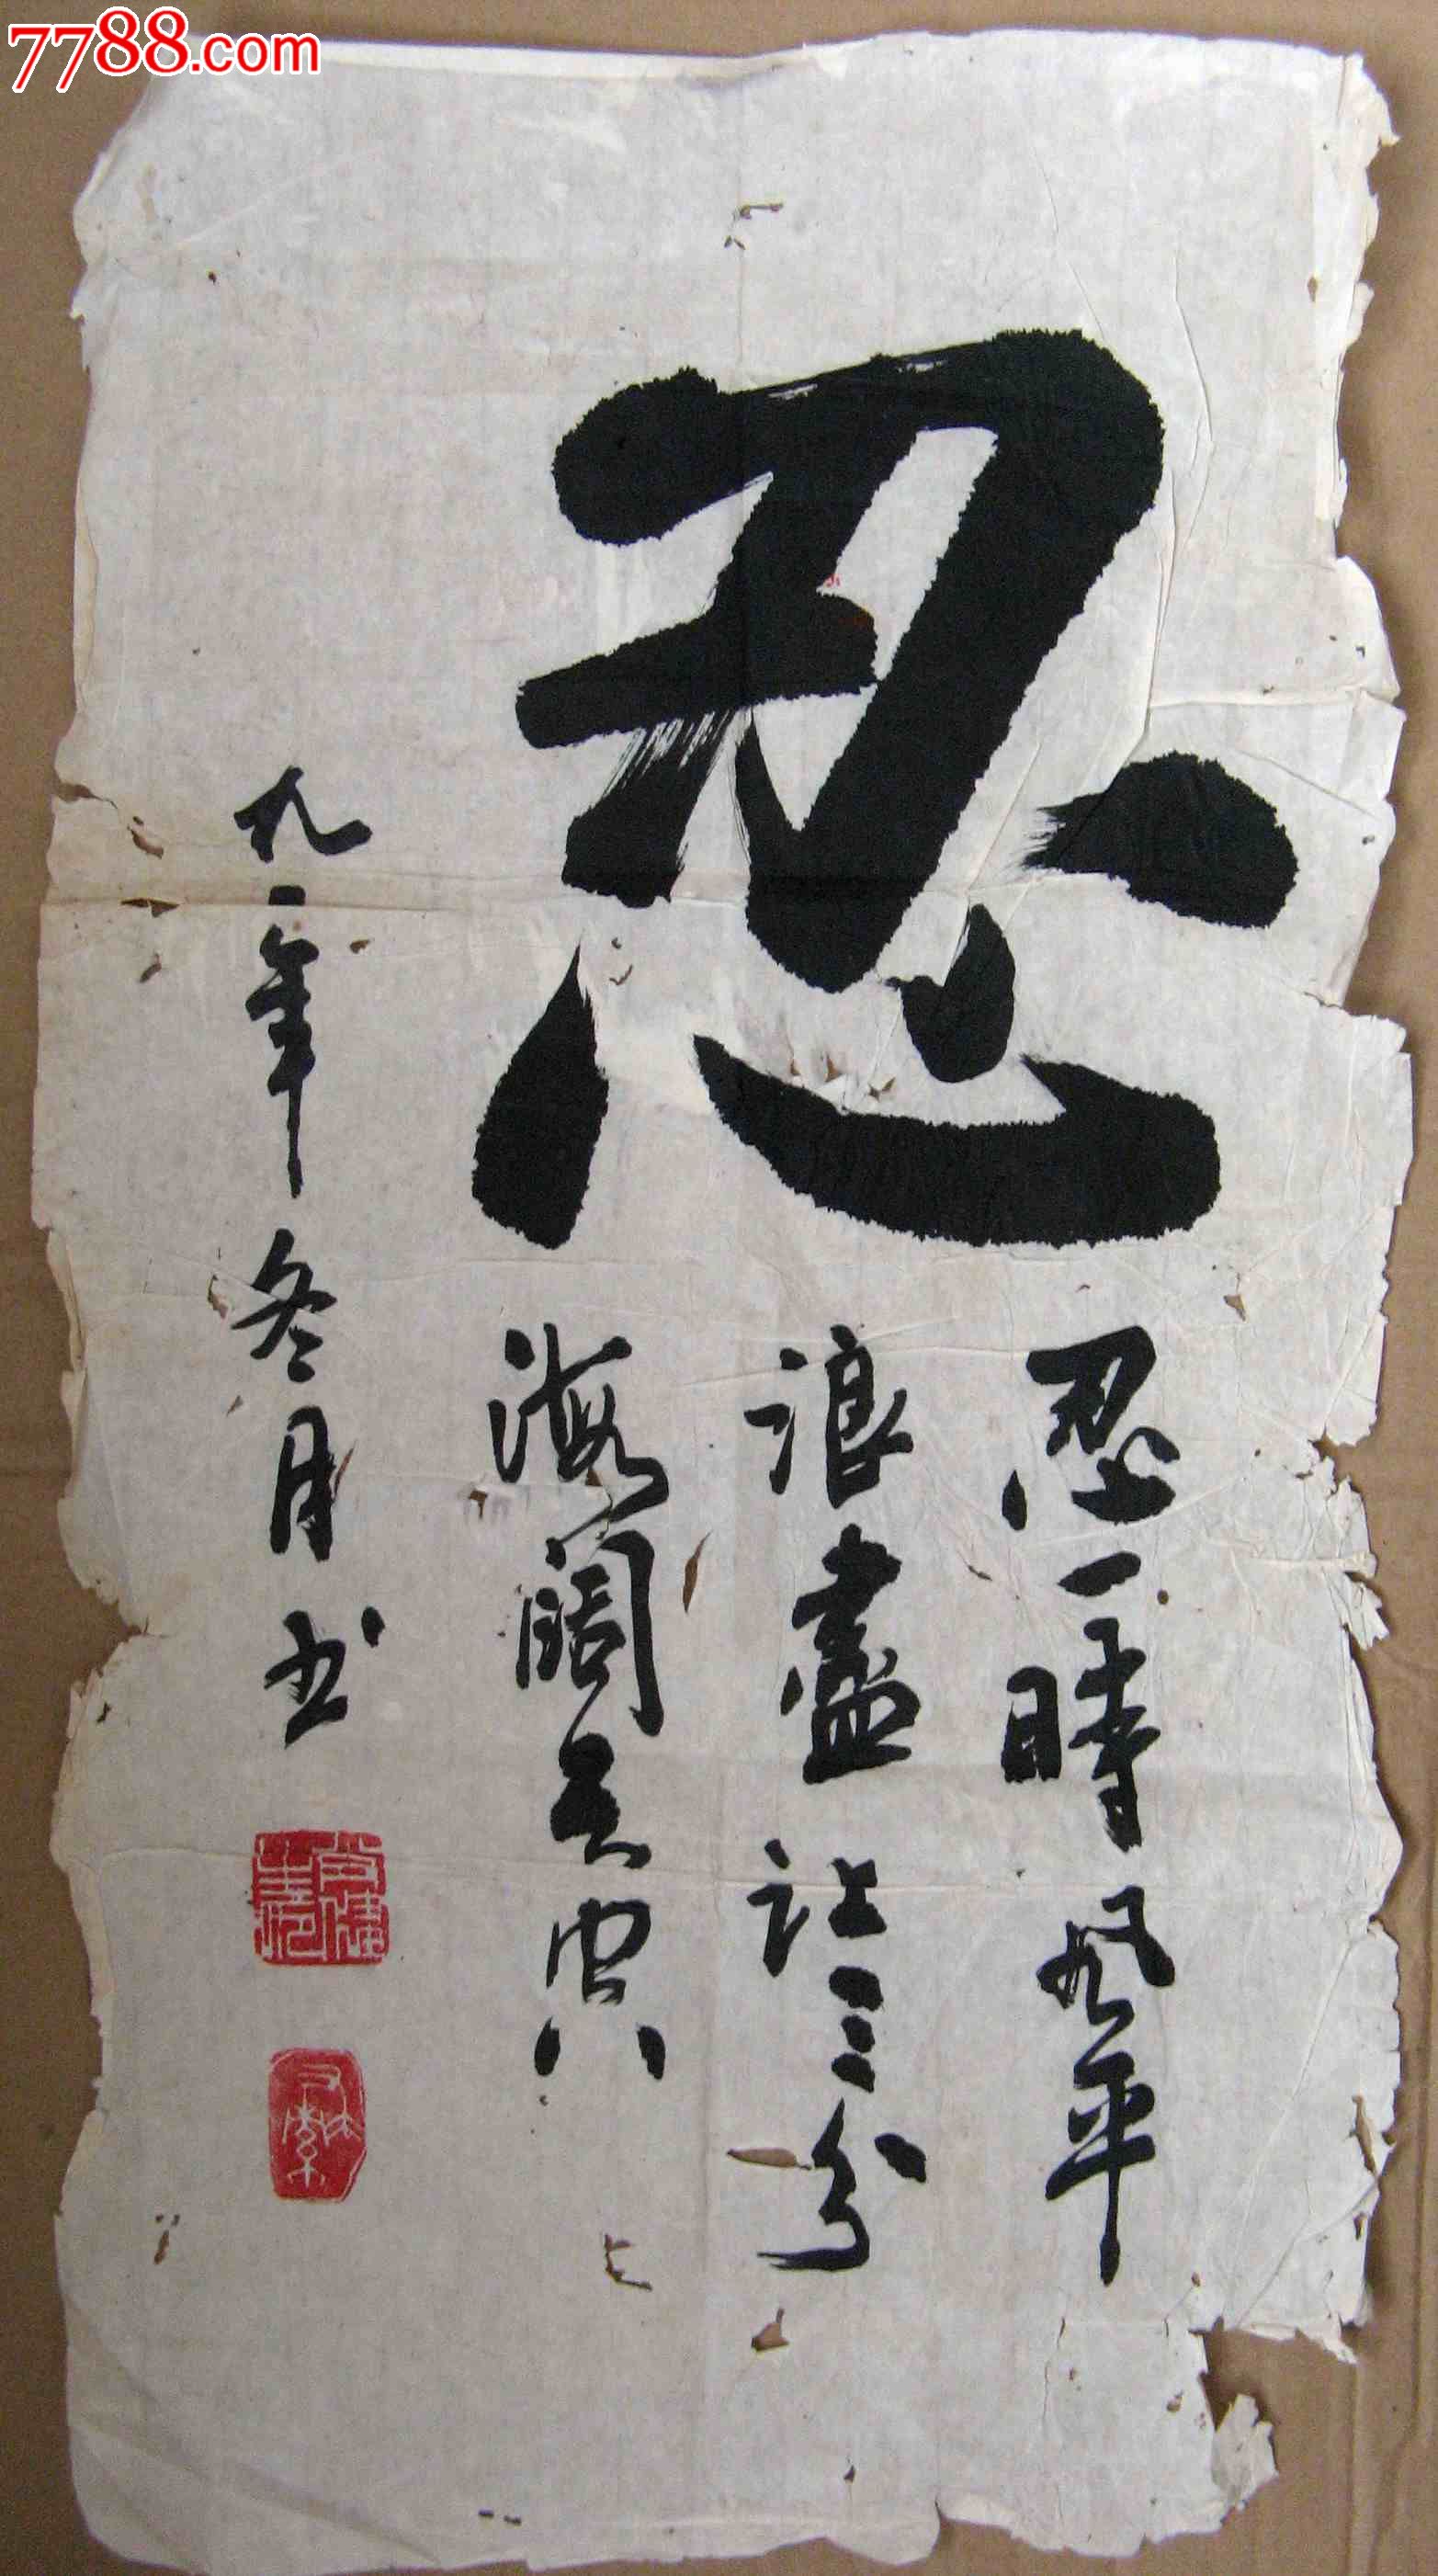 7788.com
忍
忍一時风平
浪盡让三分
海阔天空
九一年冬月书